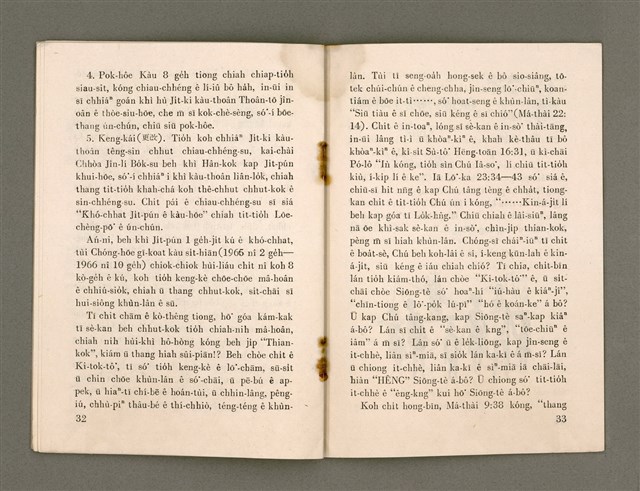 4. Pok-hôe Kàu 8 ge̍h tiong chiah chiap-tio̍h
siau-sit, kóng chiau-chhéng ê lí-iû bô ha̍h, in-ūi in
sī chhiáⁿ goán khì hù Ji̍t-kí kàu-thoân Thoân-tō jîn-
oân ê thòe-siu-hōe, che m̄ sī kok-chè-sèng, só͘-í bōe-
thang ún-chún, chiū siū pok-hôe.
5. Keng-kái (更改). Tio̍h koh chhiáⁿ Ji̍t-kí kàu-
thoân têng-sin chhut chiau-chhéng-su, kai-chài
Chhòa Jîn-lí Bo̍k-su beh khì Hân-kok kap Ji̍t-pún
khui-hōe, só͘-í chhiáⁿ i khì kàu-thoân liân-lo̍k, chiah
thang tit-tio̍h khah-chá koh thê-chhut chhut-kok ê
sin-chhéng-su. Chit pái ê chiau-chhéng-su sī siá
"Khó-chhat Ji̍t-pún ê kàu-hōe" chiah tit-tio̍h Lōe-
chèng-pō͘ ê ún-chún.
Án-ni, beh khì Ji̍t-pún 1 ge̍h-ji̍t kú ê khó-chhat,
tùi Chóng-hōe gī-koat kàu si̍t-hiān (1965 nî 2 ge̍h—
1966 nî 10 ge̍h) chiok-chiok hùi-liáu chi̍t nî koh 8
kò-ge̍h ê kú, koh tio̍h keng-kè chōe-chōe mâ-hoân
ê chhiú-sio̍k, chiah ū thang chhut-kok, si̍t-chāi sī
hui-siông khùn-lân ê sū.
Tī chit chām ê kò-thêng tiong, hō͘ góa kám-kak
tī sè-kan beh chhut-kok tio̍h chiah-nih mâ-hoân,
chiah nih húi-khì hô-hòng kóng beh ji̍p "Thian-
kok", kiám ū thang hiah sûi-piān!? Beh chòe chi̍t ê
Ki-tok-tô͘, tī só͘ tio̍h keng-kè ê lō͘-chām, sū-si̍t
ū chin chōe khùn-lân ê só͘-chāi, ū pē-bú ê ap-
pek, ū hiaⁿ-tī chí-bē ê hoán-tùi, ū chhin-lâng, pêng-
iú, chhù-piⁿ thâu-bé ê thí-chhiò, téng-téng ê khùn-
32
lân. Tùi tī seng-oa̍h hong-sek ê bô sio-siâng, tō-
tek chúi-chún ê cheng-chha, jîn-seng lô͘-chiūⁿ, koan-
tiám ê bōe it-tì……, só͘ hoat-seng ê khùn-lân, tì-kàu
"Siū tiàu ê sī chōe, siū kéng ê sī chió" (Má-thài 22:
14). Chit ê in-toaⁿ, lóng sī sè-kan ê in-sò͘ thài-têng,
in-ūi lâng tì-ì ū khòaⁿ-kìⁿ ê, khah kè-thâu tì bô
khòaⁿ-kìⁿ ê, kì-si̍t Sù-tô͘ Hēng-toān 16:31, ū kì-chāi
Pó-lô "Iû kóng, tio̍h sìn Chú Iâ-so͘, lí chiū tit-tio̍h
kiù, í-ki̍p lí ê ke". Iā Lō͘-ka 23:34—43 só͘ siá ê,
chiū-sī hit nn̄g ê kap Chú tâng tèng ê chha̍t, tiong-
kan chi̍t ê tit-tio̍h Chú ún i kóng, "……Kin-á-ji̍t lí
beh kap góa tī Lo̍k-hn̂g." Chiū chiah ê lâi-siūⁿ, lâng
nā ōe khì-sak sè-kan ê in-sò͘, chìn-ji̍p thian-kok,
pèng m̄ sī hiah khùn-lân. Chóng-sī cháiⁿ-iūⁿ tī chit
ê boat-sè, Chú beh koh-lâi ê sî, í-keng kūn-lah ê kin-
á-ji̍t, siū kéng ê iáu chiah chió? Tī chia, chi̍t-bīn
lán tio̍h kiám-thó, lán chòe "Ki-tok-tô͘" ê, ū si̍t-
chāi chòe Siōng-tè só͘ hoaⁿ-hí "iú-hāu ê kiáⁿ-jî",
"chīn-tiong ê lô͘-po̍k lú-pī" "hó ê koán-ke" á-bô?
Ū kap Chú tâng-kang, kap Siōng-tè saⁿ-kap kiâⁿ
á-bô? Lán sī chit ê "sè-kan ê kng", "tōe-chiūⁿ ê
iâm" á m̄ sī? Lán só͘ ū ê le̍k-liōng, kap jîn-seng ê
it-chhè, liân sìⁿ-miā, sī sio̍k lán ka-kī ê á m̄-sī? Lán
ū chiong it-chhè, liân ka-kī ê sìⁿ-miā iā chāi-lāi,
hiàn "HÈNG" Siōng-tè á-bô? Ū chiong só͘ tit-tio̍h
it-chhè ê "êng-kng" kui hō͘ Siōng-tè á-bô?
Koh chi̍t hong-bīn, Má-thài 9:38 kóng, "thang
33